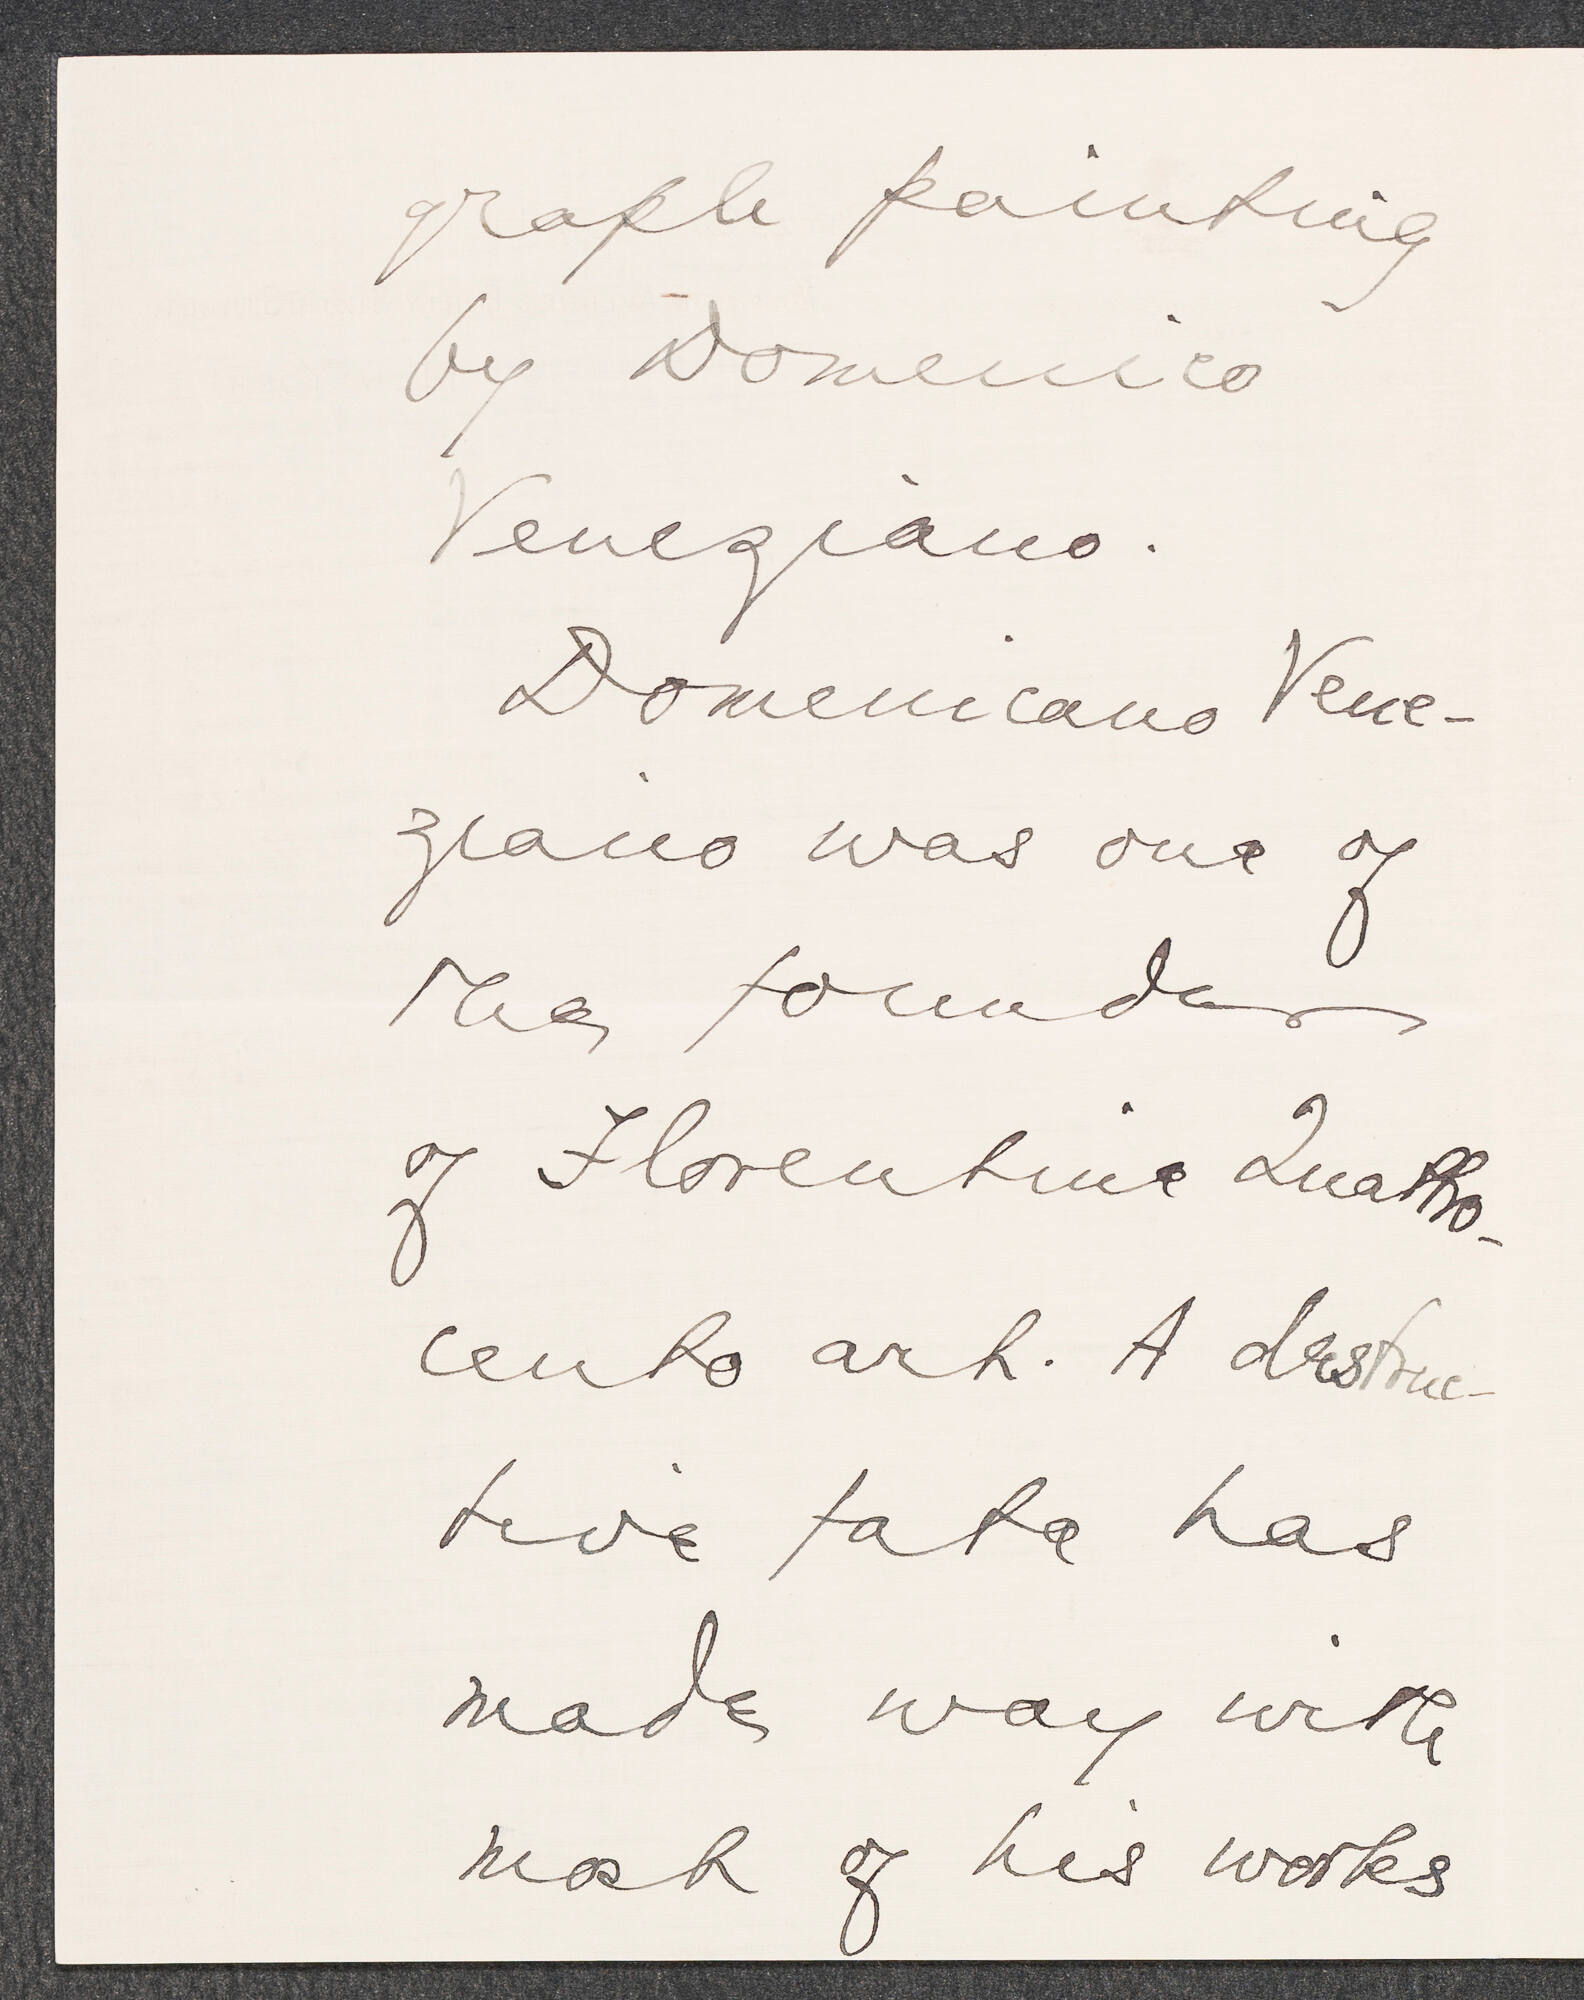 graph painting
by Domenico
Veneziano.
Domenicano Vene-
ziano was one of
the founders
of Florentine Quattro-
cento art. A destruc-
tive fate has
made way with
most of his works